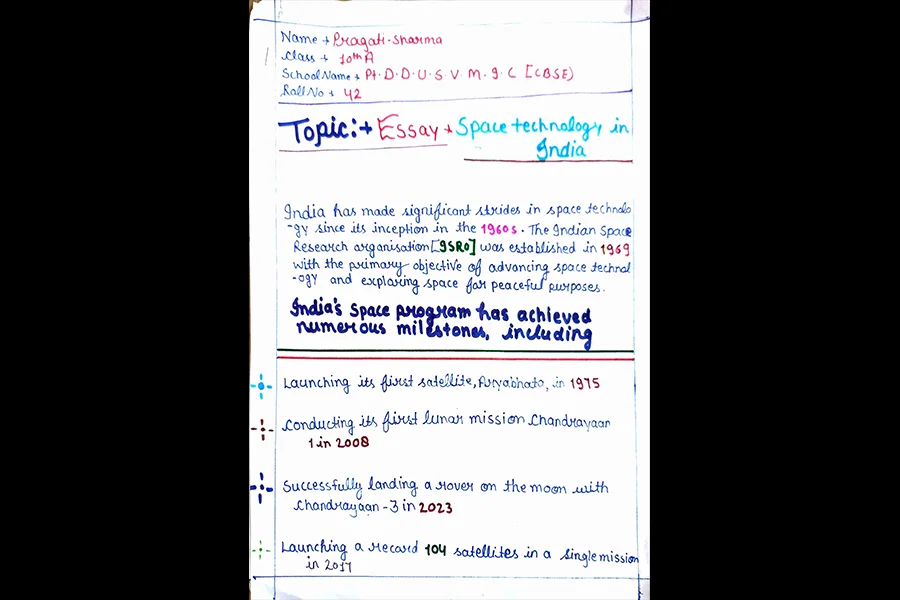 Name → Pragati-Sharma
Class → 10th A
School Name → Pt.D.D.U.S.V.M.I.C [CBSE)
Roll No → 42
Topic:→ Essay → Space technology in
India
India has made significant strides in space technolo
-gy since its inception in the 1960s. The Indian Space
Research organisation [ISRO] was established in 1969
with the primary objective of advancing space technol
-ogy and exploring space for peaceful purposes.
India's Space program has achieved
numerous milestones, including
Launching its first satellite, Aryabhata, in 1975
Conducting its first lunar mission Chandrayaan
1 in 2008
Successfully landing a rover on the moon with
Chandrayaan-3 in 2023
Launching a record 104 satellites in a single mission
in 2017